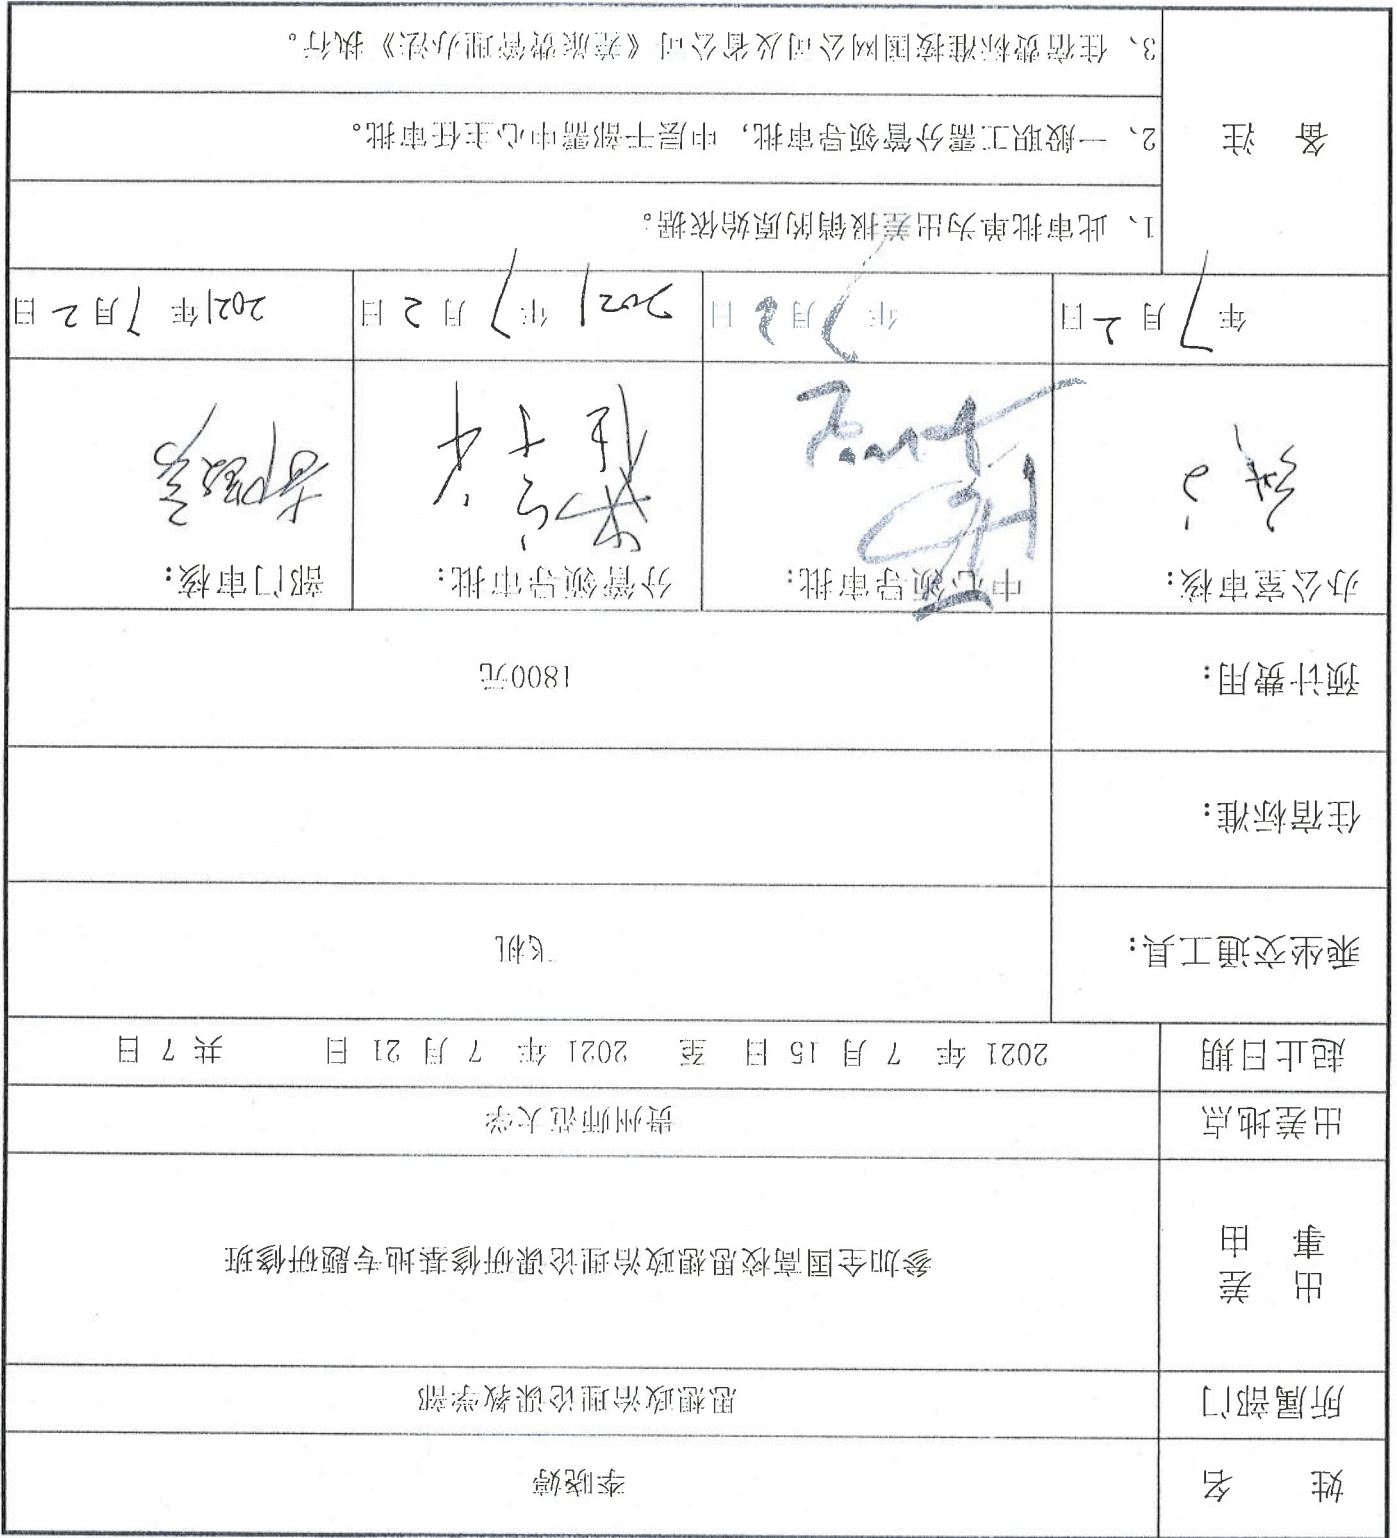 姓 名 李晓婷
所属部门 思想政治理论课教学部
出差
事由 参加全国高校思想政治理论课研修基地专题研修班
出差地点 贵州师范大学
起止日期 2021 年 7 月 15 日 至 2021 年 7 月 21 日 共 7 日
乘坐交通工具: 飞机
住宿标准:
预计费用: 1800元
办公室审核: 中心领导审批: 分管领导审批: 部门审核:
年 7 月 2 日 年 7 月 2 日 2021 年 7 月 2 日 2021 年 7 月 2 日
备 注
1、此审批单为出差报销的原始依据。
2、一般职工需分管领导审批,中层干部需中心主任审批。
3、住宿费标准按国网公司及省公司《差旅费管理办法》执行。